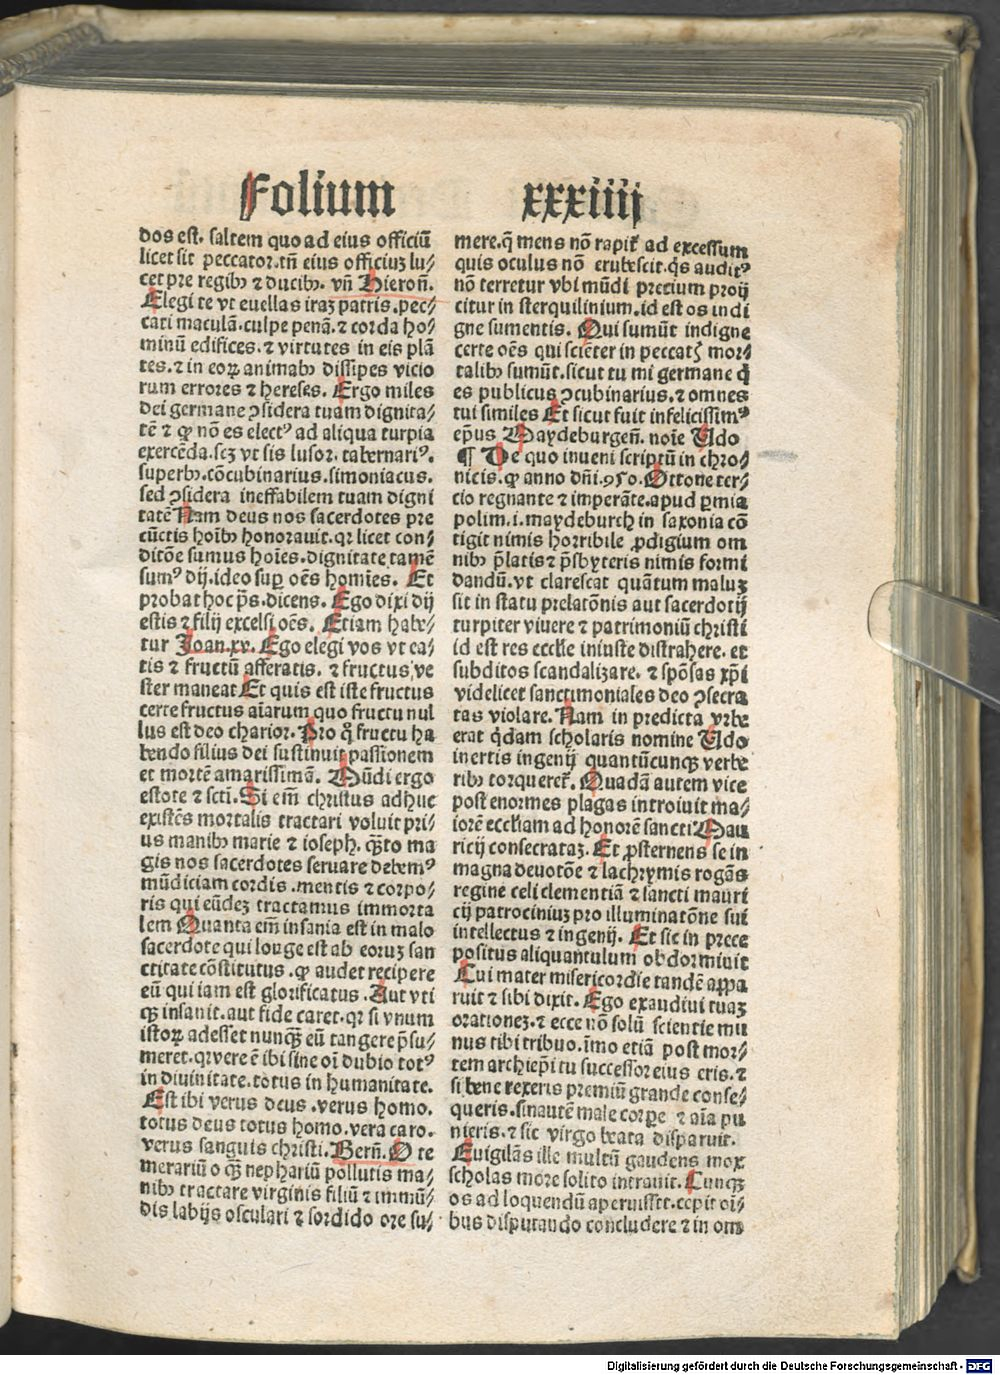 Folium xxxiiij
dos est. saltem quo ad eius officiū
licet sit peccator. tñ eius officiuȝ lu⸗
cet pre regibꝫ ⁊ ducibꝫ. vñ Hieroñ.
Elegi te vt euellas iraȝ patris. pec⸗
cati maculā. culpe penā. ⁊ corda ho⸗
minū edifices. ⁊ virtutes in eis plā
tes. ⁊ in eoꝝ animabꝫ dissipes vicio
rum errores ⁊ hereses. Ergo miles
dei germane ꝯsidera tuam dignita⸗
tē ⁊ ꝙ nō es electꝰ ad aliqua turpia
exercēda. scȝ vt sis lusor. tabernariꝰ.
superbꝰ. cōcubinarius. simoniacus.
sed ꝯsidera ineffabilem tuam digni
tatē Nam deus nos sacerdotes pre
cūctis hoībꝫ honorauit. qꝛ licet con⸗
ditōe sumus hoīes. dignitate tamē
sumꝰ dij. ideo suꝑ oēs homīes. Et
probat hoc pͥs. dicens. Ego dixi dij
estis ⁊ filij excelsi oēs. Etiam habe⸗
tur Joan. xv. Ego elegi vos vt ea⸗
tis ⁊ fructū afferatis. ⁊ fructus ve
ster maneat Et quis est iste fructus
certe fructus aīarum quo fructu nul
lus est deo charior. Pro q̄ fructu ha
bendo filius dei sustinuit passionem
et mortē amarissimā. Mūdi ergo
estote ⁊ sctī. Si em̄ christus adhuc
existēs mortalis tractari voluit pri⸗
us manibꝫ marie ⁊ ioseph. qͣȝto ma
gis nos sacerdotes seruare debemꝰ
mūdiciam cordis. mentis ⁊ corpo⸗
ris qui eūdeȝ tractamus immorta
lem Quanta em̄ insania est in malo
sacerdote qui longe est ab eoruȝ san
ctitate cōstitutus. ꝙ audet recipere
eū qui iam est glorificatus. Aut vti
qȝ insanit. aut fide caret. qꝛ si vnum
istoꝝ adesset nunqȝ eū tangere p̄su⸗
meret. qꝛ vere ē ibi sine oī dubio totꝰ
in diuinitate. totus in humanitate.
Est ibi verus deus. verus homo.
totus deus totus homo. vera caro.
verus sanguis christi. Berñ. O te
merariū o qȝ nephariū pollutis ma⸗
nibꝫ tractare virginis filiū ⁊ immū⸗
dis labijs osculari ⁊ sordido ore su⸗
mere. q̄ mens nō rapit̄ ad excessum
quis oculus nō erubescit. qͥs auditꝰ
nō terretur vbi mūdi precium proij
citur in sterquilinium. id est os indi
gne sumentis. Qui sumūt indigne
certe oēs qui sciēter in peccatꝭ mor⸗
talibꝫ sumūt. sicut tu mi germane qͥ
es publicus ꝯcubinarius. ⁊ omnes
tui similes Et sicut fuit infelicissimꝰ
ep̄us Maydeburgeñ. noīe Udo
¶ De quo inueni scriptū in chro⸗
nicis. ꝙ anno dñi. 950. Ottone ter⸗
cio regnante ⁊ imperāte. apud ꝑmia
polim. i. maydeburch in saxonia cō
tigit nimis horribile ꝓdigium om
nibꝫ p̄latis ⁊ p̄sbyteris nimis formi
dandū. vt clarescat quātum maluȝ
sit in statu prelatōnis aut sacerdotij
turpiter viuere ⁊ patrimoniū christi
id est res ecclīe iniuste distrahere. et
subditos scandalizare. ⁊ spōsas xp̄i
videlicet sanctimoniales deo ꝯsecra
tas violare. Nam in predicta vrbe
erat qͥdam scholaris nomine Udo
inertis ingenij quantūcunqȝ verbe
ribꝫ torqueret̄. Quadā autem vice
post enormes plagas introiuit ma⸗
iorē eccliam ad honorē sancti Mau
ricij consecrataȝ. Et ꝓsternens se in
magna deuotōe ⁊ lachrymis rogās
regine celi clementiā ⁊ sancti mauri
cij patrociniuȝ pro illuminatōne sui
intellectus ⁊ ingenij. Et sic in prece
positus aliquantulum obdormiuit
Cui mater misericordie tandē appa
ruit ⁊ sibi dixit. Ego exaudiui tuaȝ
orationeȝ. ⁊ ecce nō solū scientie mu
nus tibi tribuo. īmo etiā post mor⸗
tem archiep̄i tu successor eius eris. ⁊
si bene rexeris premiū grande conse⸗
queris. sin autē male corꝑe ⁊ aīa pu
nieris. ⁊ sic virgo beata disparuit.
Euigilās ille multū gaudens mox
scholas more solito intrauit. Cunqȝ
os ad loquendū aperuisset. cepit oī⸗
bus disputando concludere ⁊ in om
Digitalisierung gefördert durch die Deutsche Forschungsgemeinschaft - DFG